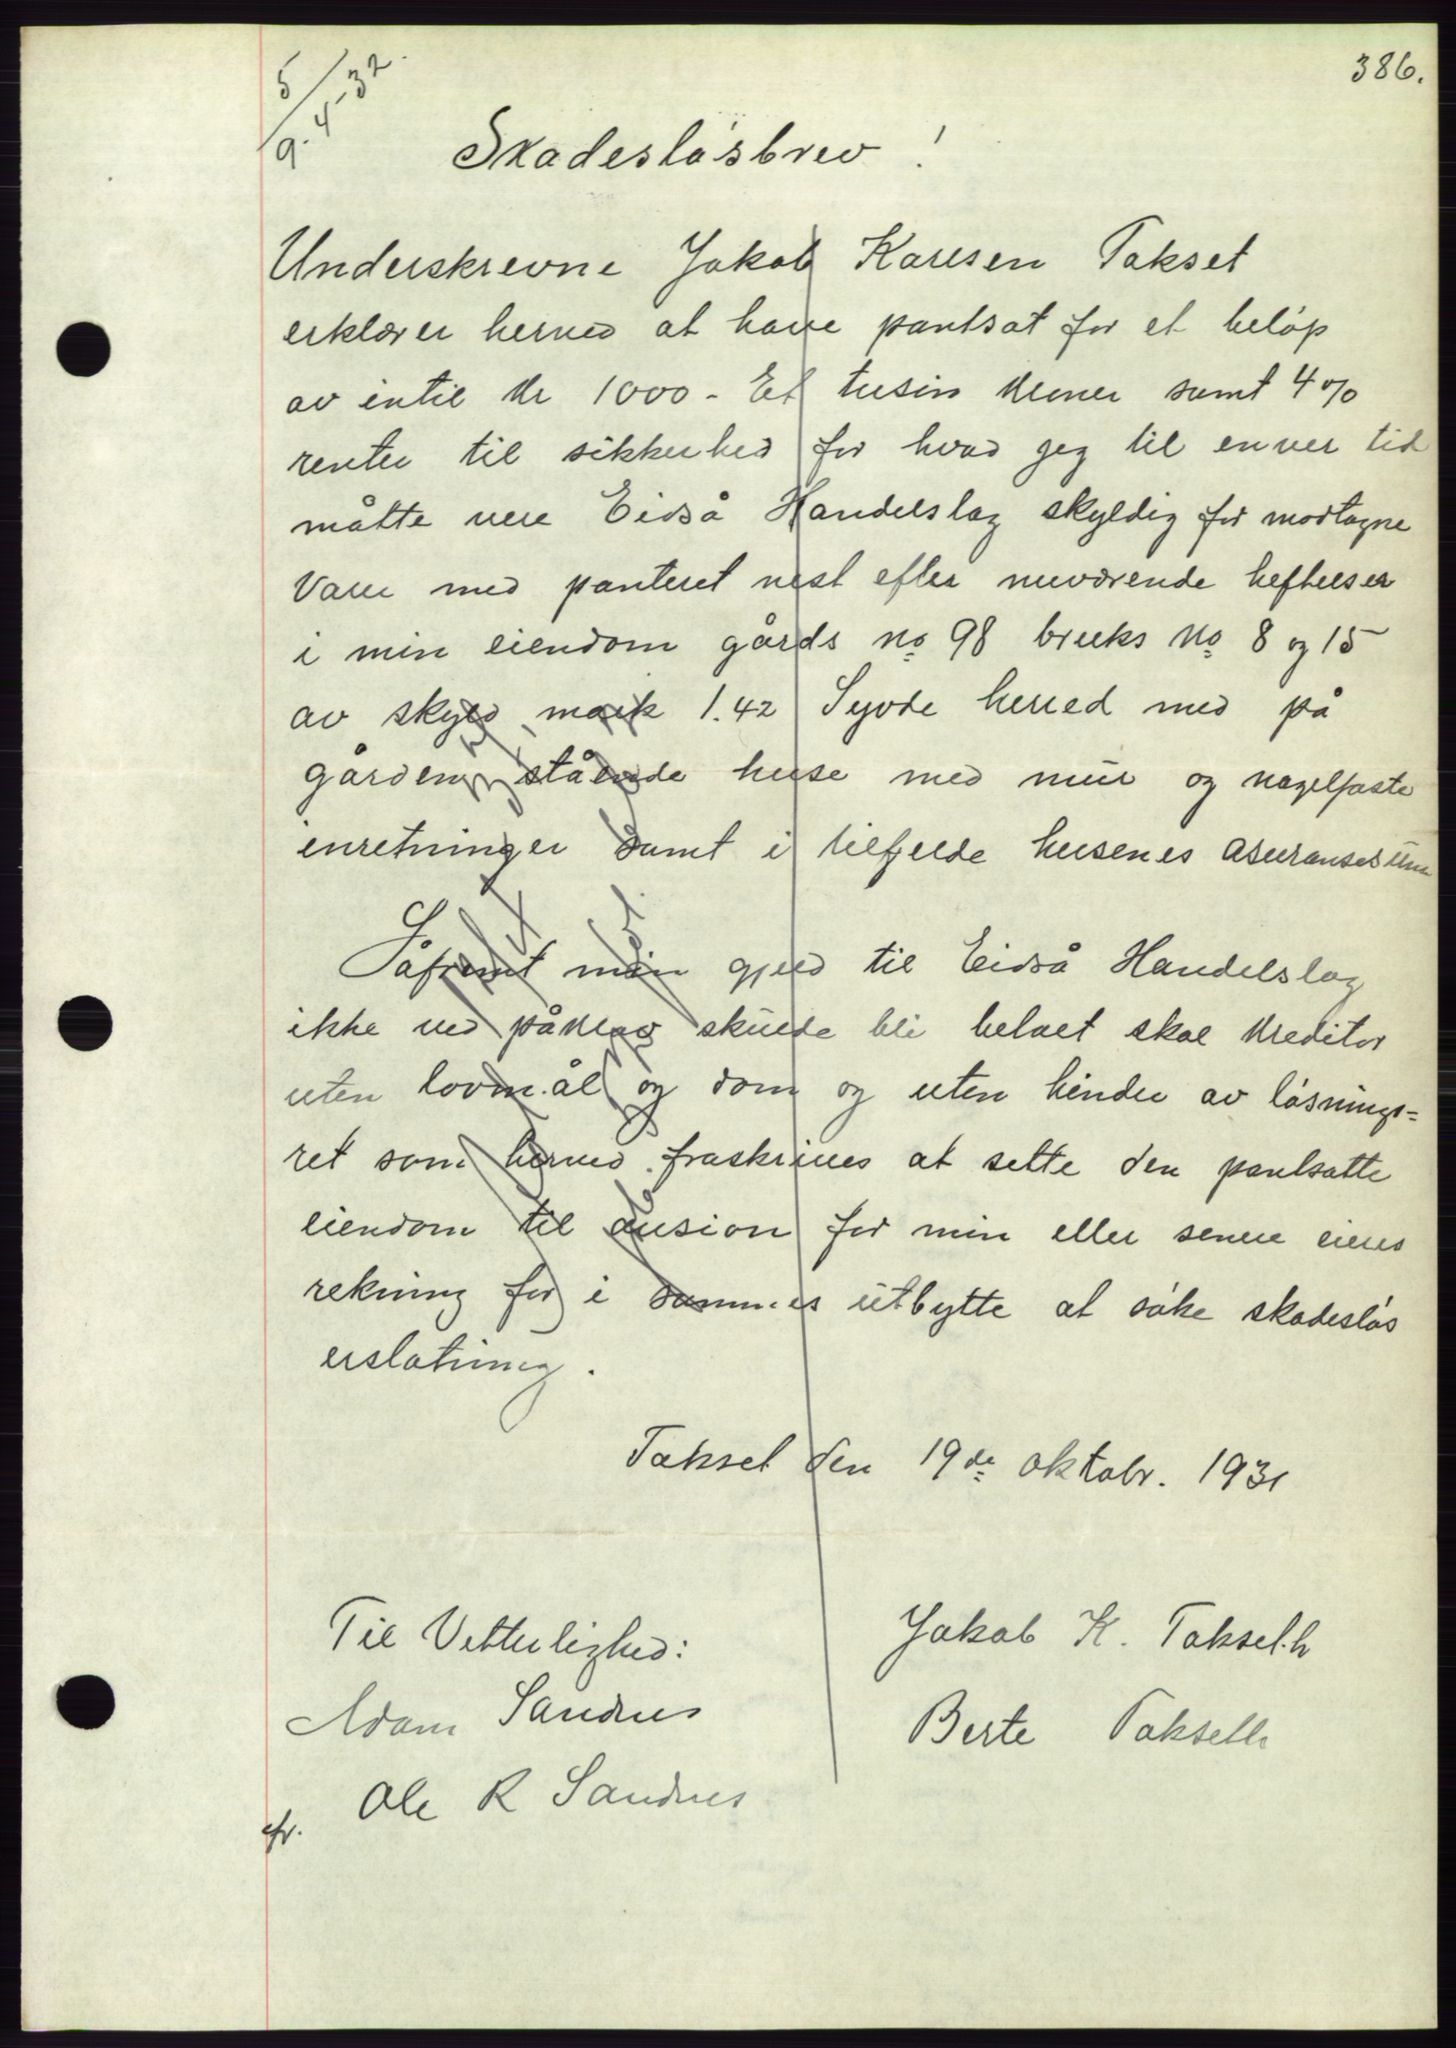 386.
5/9-4-32.
Skadesløsbrev!
Underskrevne Jakob Karlsen Takset
erklærer herved at have pantsat for et beløp
av intil kr 1000 - Et tusin kroner samt 4%
renter til sikkerhed for hvad jeg til enver tid
måtte vere Eidså Handelslag skyldig for mottagne
Varer med panteret nest efter nuværende heftelser
i min eiendom gårds no 98 bruks No 8 og 15
av skyld mark 1.42 Syvde herred med på
gården stående huse med mur og nagelfaste
inretninger samt i tilfelde husenes asuransesum
Såfremt min gjeld til Eidså Handelslag
ikke ved påkrav skulde bli betalt skal kreditor
uten lovmål og dom og uten hinder av løsnings=
ret som herved fraskrives at sette den pantsatte
eiendom til ausion for min eller senere eieres
rekning for i sammes utbytte at søke skadesløs
erstatning.
Takset den 19de oktobr. 1931
Til Vitterlighed:
Jakob K. Takseth
Adam Sandnes
Berte Takseth
Ole R Sandnes